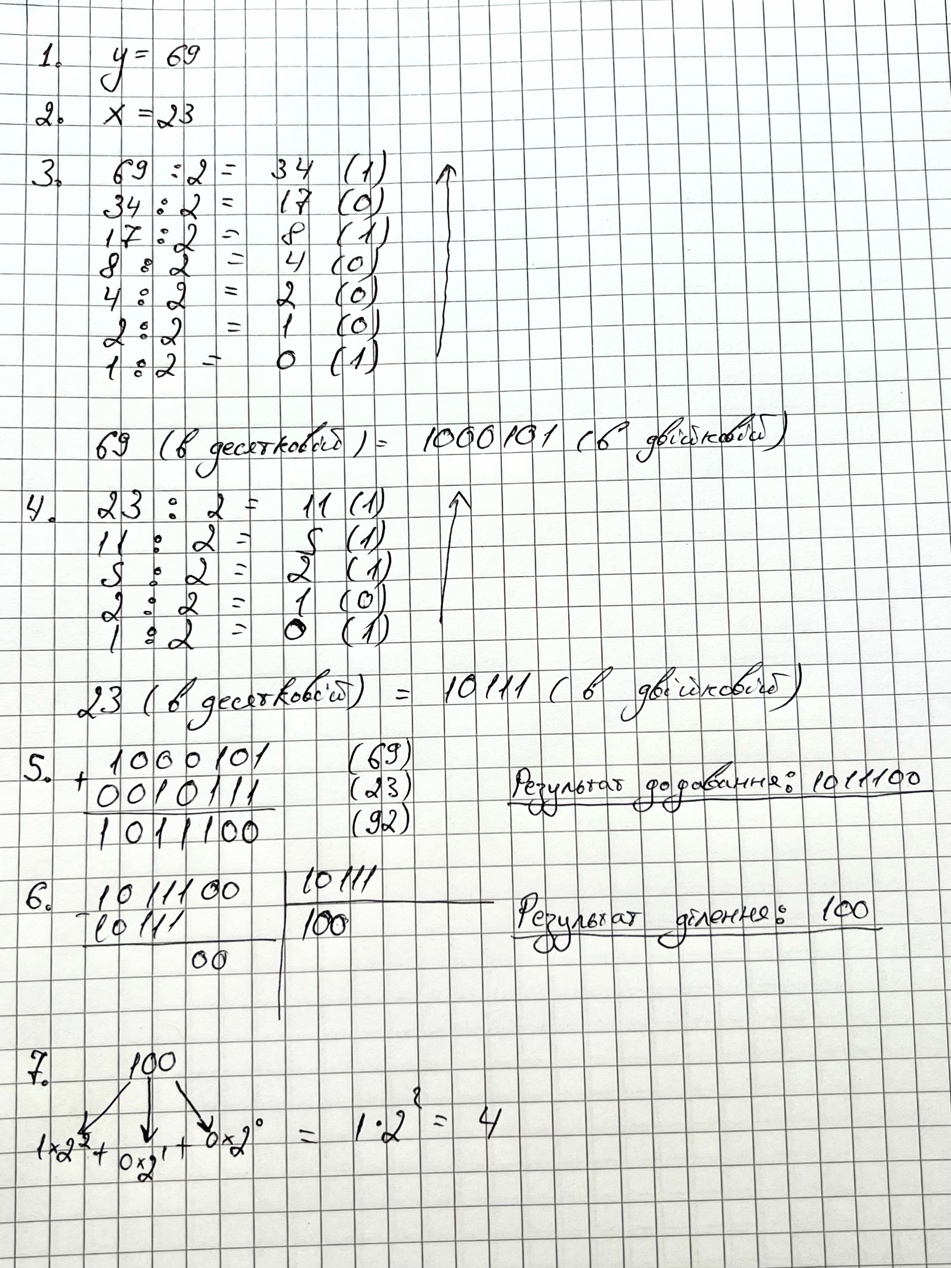 1. y = 69
2. x = 23
3. 69 : 2 = 34 (1)
34 : 2 = 17 (0)
17 : 2 = 8 (1)
8 : 2 = 4 (0)
4 : 2 = 2 (0)
2 : 2 = 1 (0)
1 : 2 = 0 (1)
69 (в десятковій) = 1000101 (в двійковій)
4. 23 : 2 = 11 (1)
11 : 2 = 5 (1)
5 : 2 = 2 (1)
2 : 2 = 1 (0)
1 : 2 = 0 (1)
23 (в десятковій) = 10111 (в двійковій)
5. + 1000101 (69)
0010111 (23) Результат додавання: 1011100
1011100 (92)
6. - 1011100 | 10111
10111 | 100 Результат ділення: 100
00
7. 100
1×2² + 0×2¹ + 0×2⁰ = 1·2² = 4